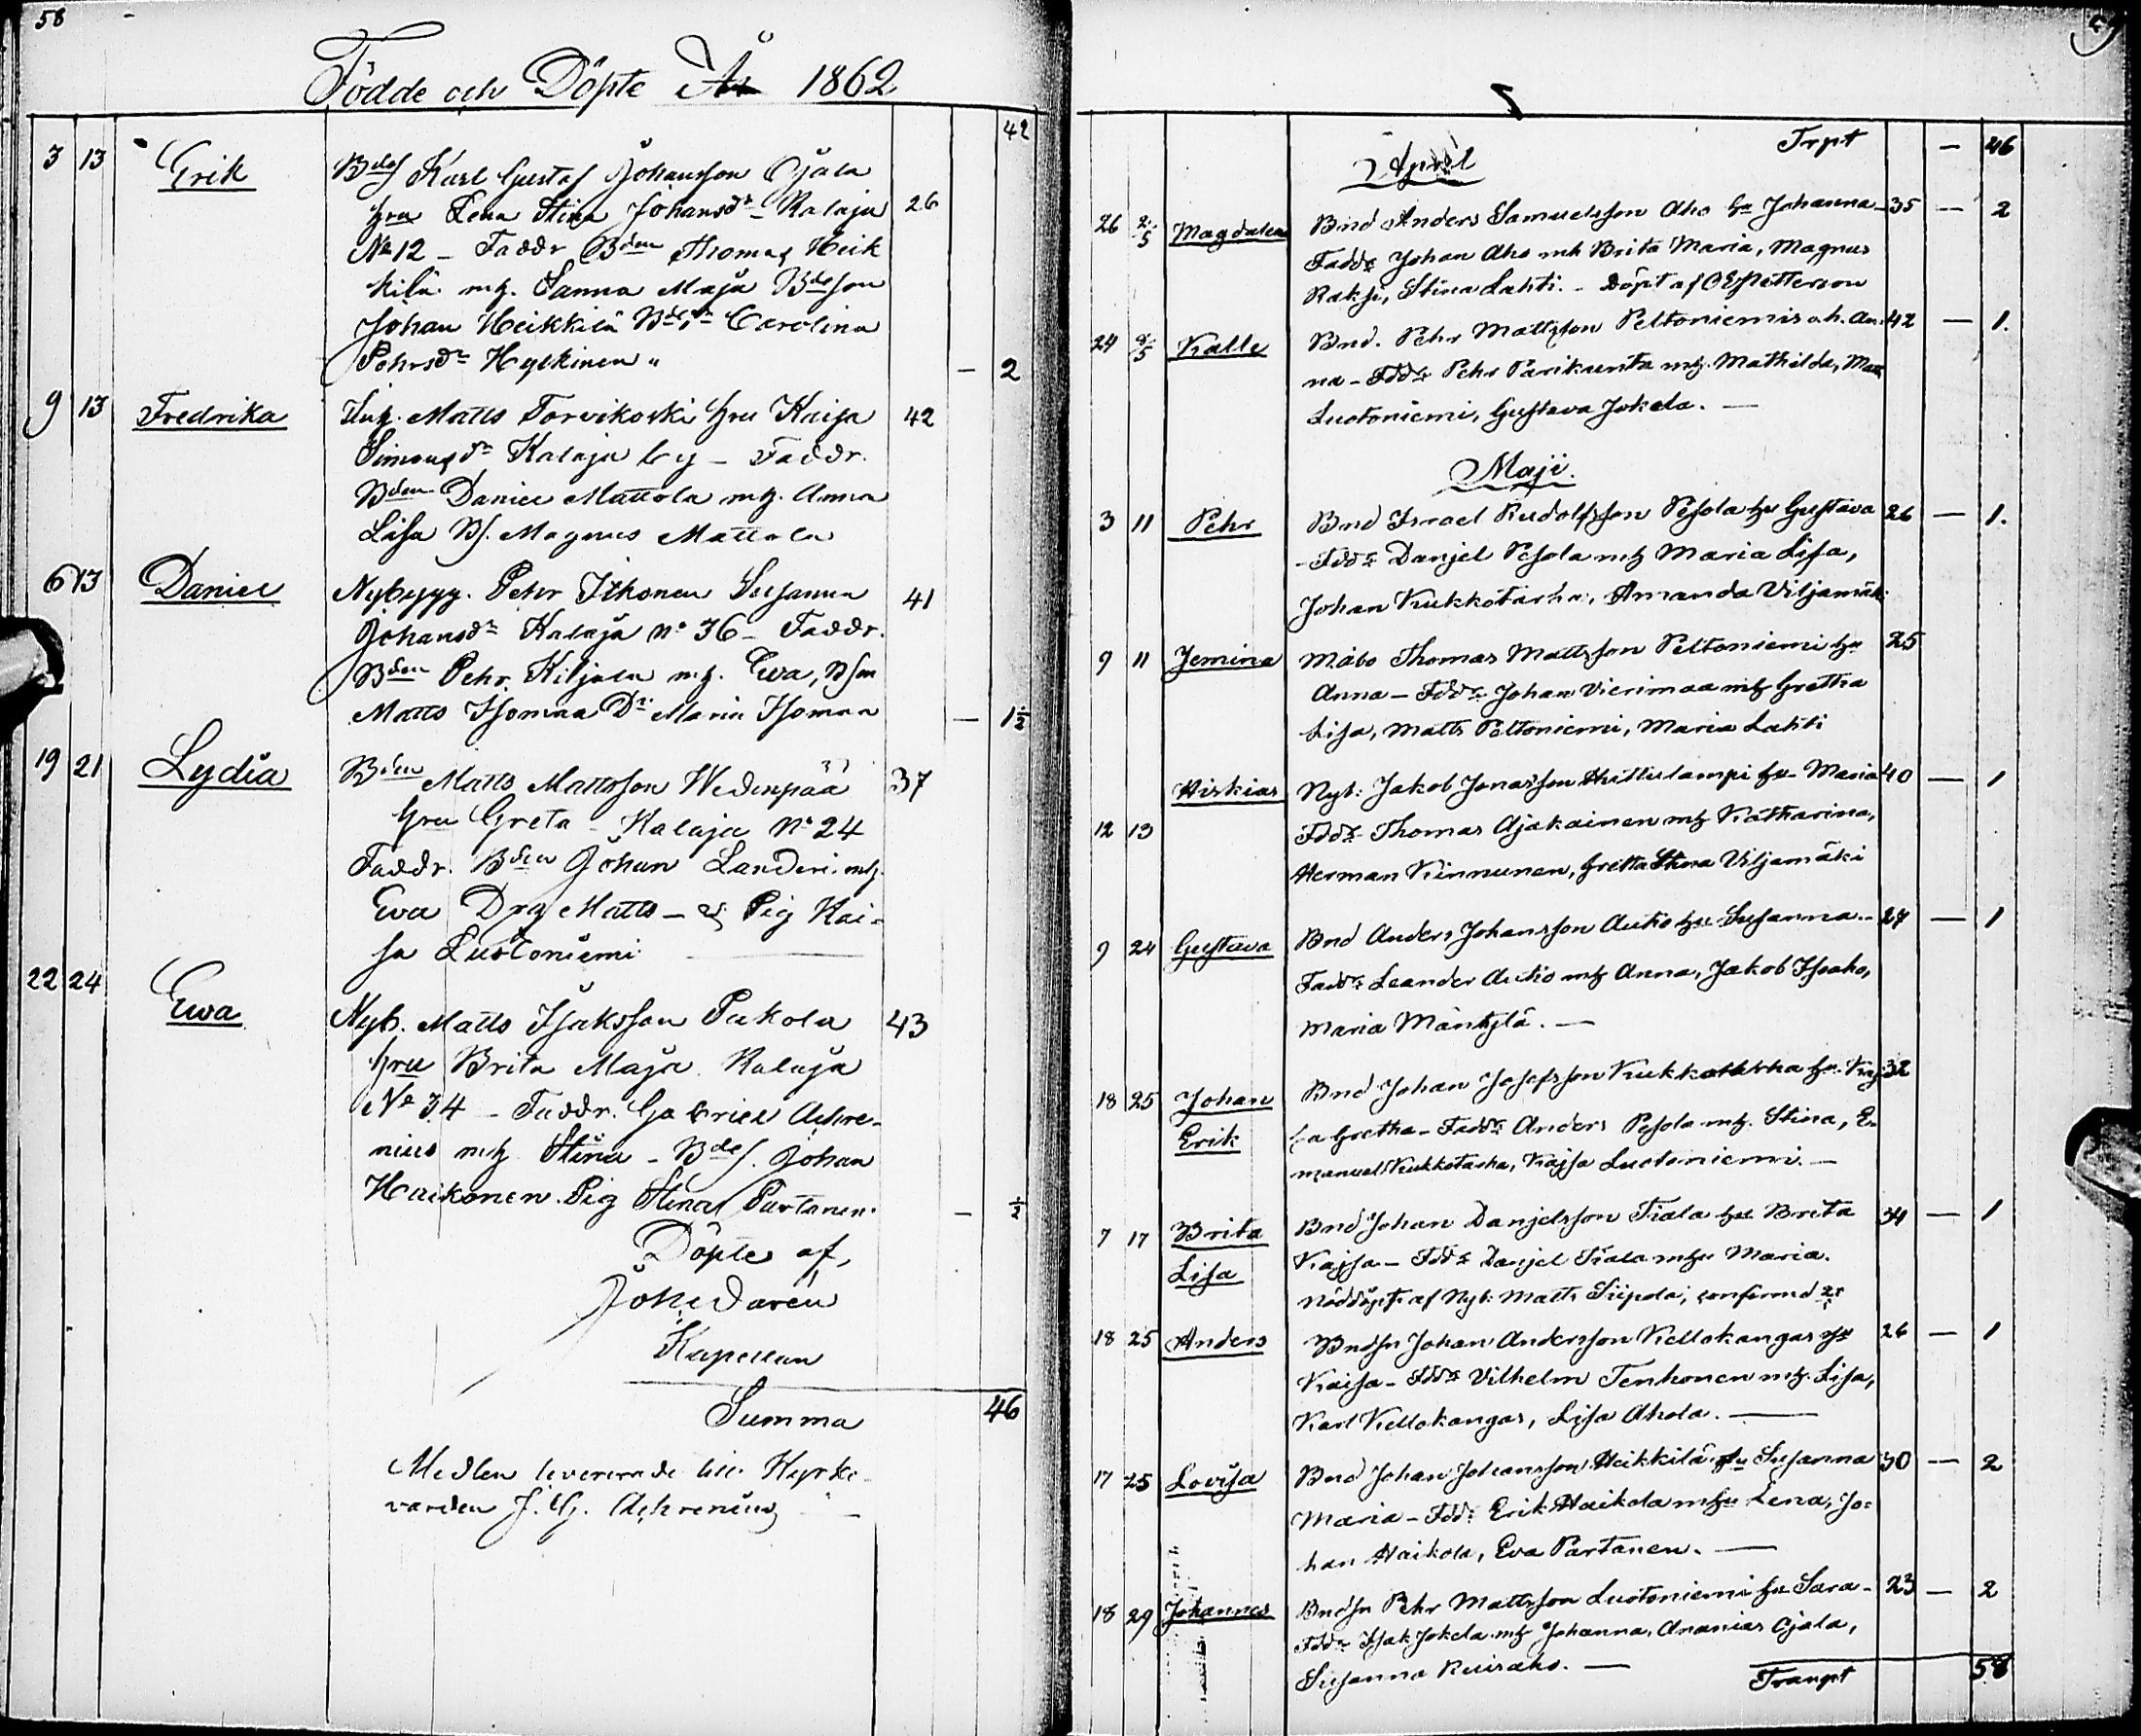 58
Födde och Döpte År 1862
42
3 13 Erik Bdes Karl Gustaf Johansson Ojala
hru Lena Stina Johansdr Kalaja 26
No 12 - Faddr Bden Thomas Heik
kilä mh. Sanna Maja Bdeson
Johan Heikkilä Bdedr Carolina
Pehrsdr Hylkinen - 2
9 13 Fredrika Inh. Matts Torvikoski hru Kaisa 42
Simonsdr Kalaja by - Faddr.
Bden Daniel Mattola mh. Anna
Lisa Bs. Magnus Mattola
6 13 Daniel Nybygg. Pehr Ilkonen Susanna 41
Johansdr Kalaja No 36 - Faddr.
Bden Pehr Kiljala mh. Ewa, Bson
Matts Isomaa Dr Maria Isomaa - 1 1/2
19 21 Lydia Bden Matts Mattsson Wedenpää 37
hru Greta - Kalaja No 24
Faddr. Bden Johan Landeri mh.
Eva Drg Matts - & Pig Kai-
sa Luotoniemi
22 24 Ewa Nyb. Matts Isaksson Pakola 43
hru Brita Maja Kalaja
No 34 - Faddr. Gabriel Achre-
nius mh Stina - Bdes. Johan
Haikonen. Pig Stina Partanen. - 1/2
Döpte af,
Joh. Daren
Kapellan
Summa 46
Medlen levererade till Kyrko
varden J. G. Achrenius
59
April Trpt - 46
26 2/5 Magdalena Bnd Anders Samuelsson Aho hu Johanna - 35 - 2
Faddr Johan Aho mh Brita Maria, Magnus
Raksi, Stina Lahti. - Döpt af Petterson
24 /5 Kalle Bnd. Pehr Mattsson Peltoniemis o. h. An- 42 - 1.
na - Fddr Pehr Parikunta mh. Mathilda, Matts
Luotoniemi, Gustava Jokela. -
Maji.
3 11 Pehr Bnd Israel Rudolfsson Pesola hu Gustava 26 - 1.
- Fddr Danjel Pesola mh Maria Lisa,
Johan Kukkotarha, Amanda Viljamäki
9 11 Jemina Måbo Thomas Mattsson Peltoniemi hu 25
Anna - Fddr Johan Vierimaa mh Gretha
Lisa, Matts Peltoniemi, Maria Lahti
Hiskias Nyb: Jakob Jonasson Huttulampi hu Maria 40 - 1
12 13 Fddr Thomas Ajakainen mh Katharina,
Herman Kinnunen, Gretta Stina Viljamäki
9 24 Gustava Bnd Anders Johansson Autio hu Susanna - 27 - 1
Faddr Leander Autio mh Anna, Jakob Isoaho,
Maria Mäntylä. -
18 25 Johan Erik Bnd Johan Josefsson Kukkotarha hu Kaj- 32
sa Gretha - Faddr Anders Pesola mh. Stina, E-
manuel Kukkotarha, Kajsa Luotoniemi. -
7 17 Brita Lisa Bnd Johan Danjelsson Tiala hu Brita 34 - 1
Kajsa - Fddr Danjel Tiala mhu Maria.
Nöddöpt af Nyb: Matts Siipola, confirmd
18 25 Anders Bndsn Johan Andersson Kellokangas hu 26 - 1
Kaisa - Fddr Vilhelm Tenhonen mh. Lisa,
Karl Kellokangas, Lisa Ahola. -
17 25 Lovisa Bnd Johan Johansson Heikkilä hu Susanna 30 - 2
Maria - Fddr Erik Haikola mhu Lena, Jo-
han Haikola, Eva Partanen. -
18 29 Johannes Bndsn Pehr Mattsson Luotoniemi hu Sara - 23 - 2
Fddr Isak Jokela mh Johanna, Ananias Ojala,
Susanna Ruisaho. - Transpt 58